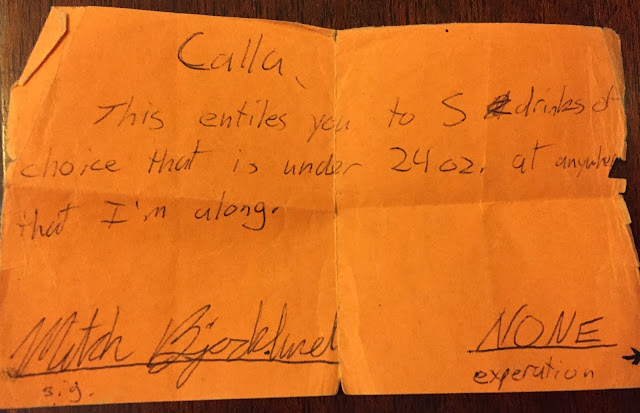 Calla,
This entiles you to 5 drinks of
choice that is under 24 oz. at anywhe
that I'm along.
Mitch Bjorklund NONE
sig. experation